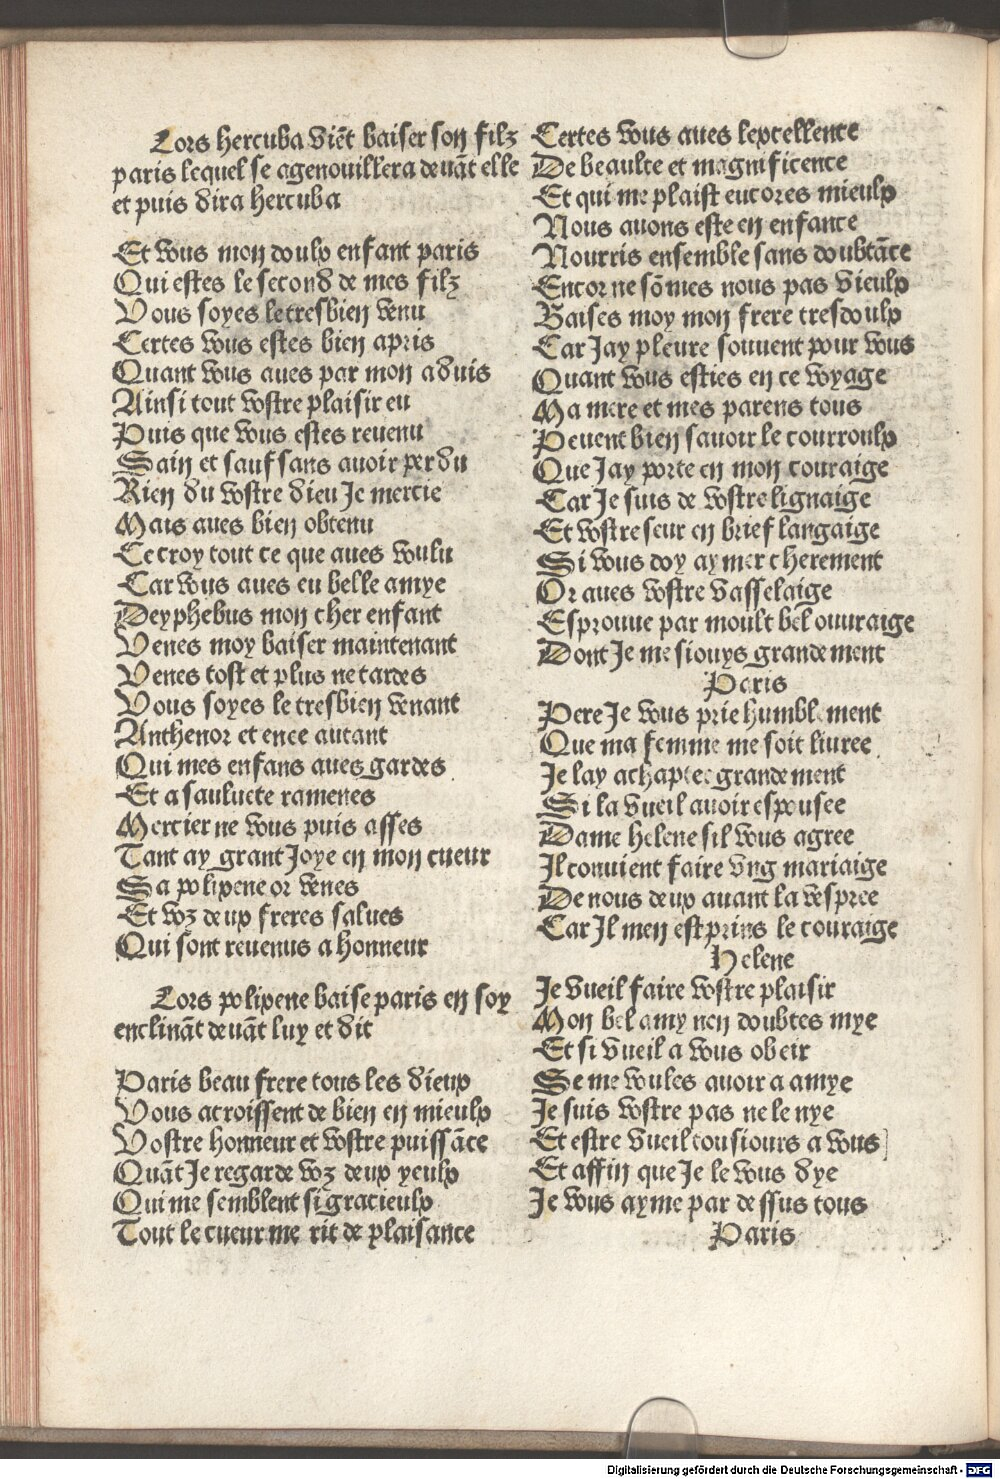 Lors hercuba viēt baiser son filz
paris lequel se agenouillera deuāt elle
et puis dira hercuba
Et vous mon doulx enfant paris
Qui estes le second de mes filz
Vous soyes le tresbien venu
Certes vous estes bien apris
Quant vous aues par mon aduis
Ainsi tout vostre plaisir eu
Puis que vous estes reuenu
Sain et sauf sans auoir perdu
Rien du vostre dieu Je mercie
Mais aues bien obtenu
Ce croy tout ce que aues voulu
Car vous aues eu belle amye
Deyphebus mon cher enfant
Venes moy baiser maintenant
Venes tost et plus ne tardes
Vous soyes le tresbien venant
Anthenor et enee autant
Qui mes enfans aues gardes
Et a sauluete ramenes
Mercier ne vous puis asses
Tant ay grant Joye en mon cueur
Sa polixene or venes
Et voz deux freres salues
Qui sont reuenus a honneur
Lors polixene baise paris en soy
enclināt deuāt luy et dit
Paris beau frere tous les dieux
Vous acroissent de bien en mieulx
Vostre honneur et vostre puissāce
Quāt Je regarde voz deux yeulx
Qui me semblent si gracieulx
Tout le cueur me rit de plaisance
Certes vous aues lexcellence
De beaulte et magnificence
Et qui me plaist encores mieulx
Nous auons este en enfance
Nourris ensemble sans doubtāce
Encor ne sōmes nous pas vieulx
Baises moy mon frere tresdoulx
Car Jay pleure souuent pour vous
Quant vous esties en ce voyage
Ma mere et mes parens tous
Peuent bien sauoir le courroulx
Que Jay porte en mon couraige
Car Je suis de vostre lignaige
Et vostre seur en brief langaige
Si vous doy aymer cherement
Or aues vostre vasselaige
Esprouue par moult bel ouuraige
Dont Je mesiouys grandement
Paris
Pere Je vous prie humblement
Que ma femme me soit liuree
Je lay achaptee grandement
Si la vueil auoir espousee
Dame helene sil vous agree
Il conuient faire vng mariaige
De nous deux auant la vespree
Car Il men est prins le couraige
Helene
Je vueil faire vostre plaisir
Mon bel amy nen doubtes mye
Et si vueil a vous obeir
Se me voules auoir a amye
Je suis vostre pas ne le nye
Et estre vueil tousiours a vous
Et affin que Je le vous dye
Je vous ayme par dessus tous
Paris
Digitalisierung gefördert durch die Deutsche Forschungsgemeinschaft - DFG